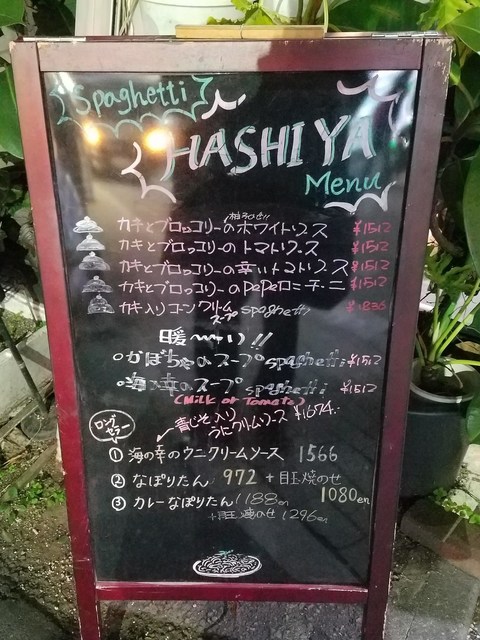 Spaghetti
HASHIYA
Menu
カキとブロッコリーのホワイトソース ¥1512
カキとブロッコリーのトマトソース ¥1512
カキとブロッコリーの辛いトマトソース ¥1512
カキとブロッコリーのpepeロニチーニ ¥1512
カキ入りコーンクリームスープspaghetti ¥1836
暖〜い!!
○かぼちゃのスープspaghetti ¥1512
○海の幸のスープspaghetti ¥1512
(Milk or Tomato)
青じそ入り
うにクリームソース ¥1674.-
ロングセラー
① 海の幸のウニクリームソース 1566
② なぽりたん 972 +目玉焼のせ
1080en
③ カレーなぽりたん 1188en
+目玉焼のせ 1296en